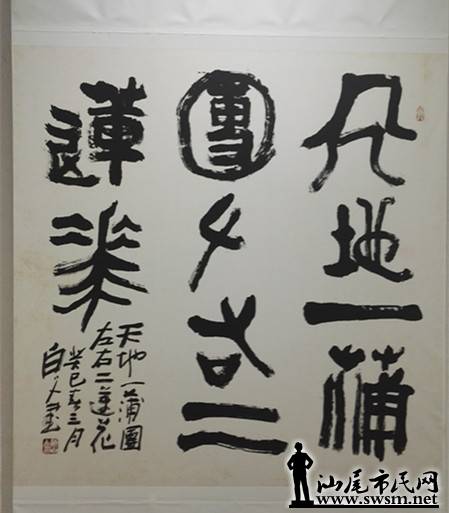 天地一蒲
團左右二
蓮花
天地一蒲團
左右二蓮花
癸巳春三月
汕尾市民网
www.swsm.net